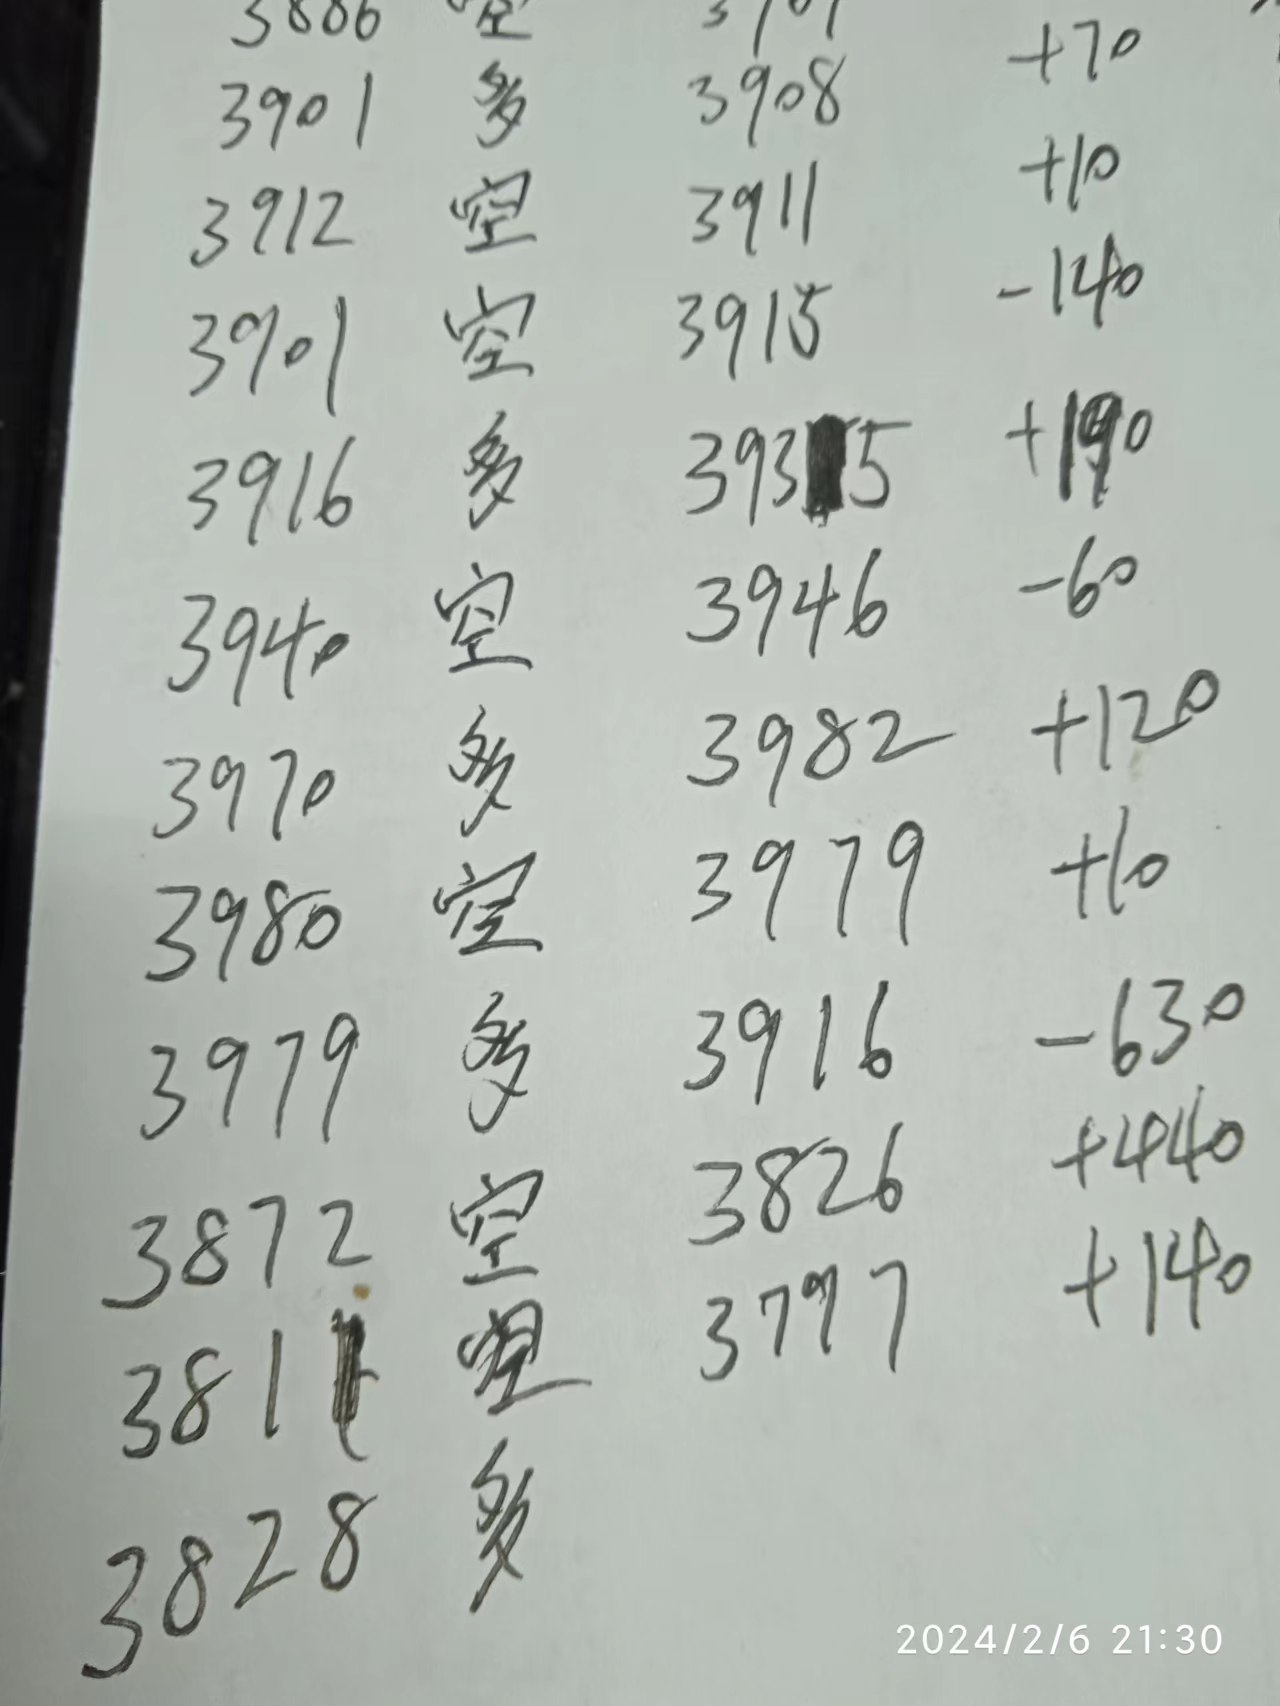 3886 空 3909
3901 多 3908 +70
3912 空 3911 +10
3901 空 3915 -140
3916 多 3935 +190
3940 空 3946 -60
3970 多 3982 +120
3980 空 3979 +10
3979 多 3916 -630
3872 空 3826 +440
3811 空 3797 +140
3828 多
2024/2/6 21:30